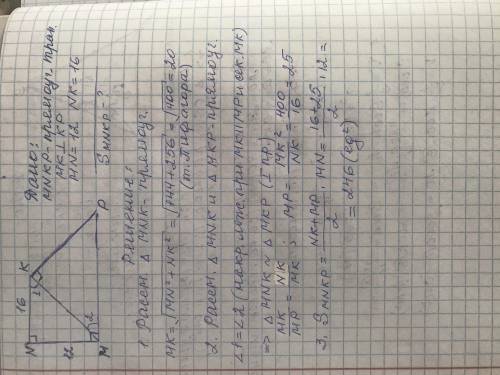 Дано:
MNKP-прямоуг. трап.
MK⊥KP
MN=12 NK=16
SMNKP-?
N 16 K
1
12
2
M P
Решение:
1. Рассм. △MNK-прямоуг.
MK=√MN²+NK²=√144+256=√400=20
(т.Пифагора)
2. Рассм. △MNK и △MKP-прямоуг.
∠1=∠2 (накр. леж. при NK||MP и сек. MK)
=> △MNK ~ △MKP (I пр.)
MK/MP = NK/MK; MP = MK²/NK = 400/16 = 25
3. SMNKP = NK+MP/2 · MN = 16+25/2 · 12 =
= 246 (ед²)